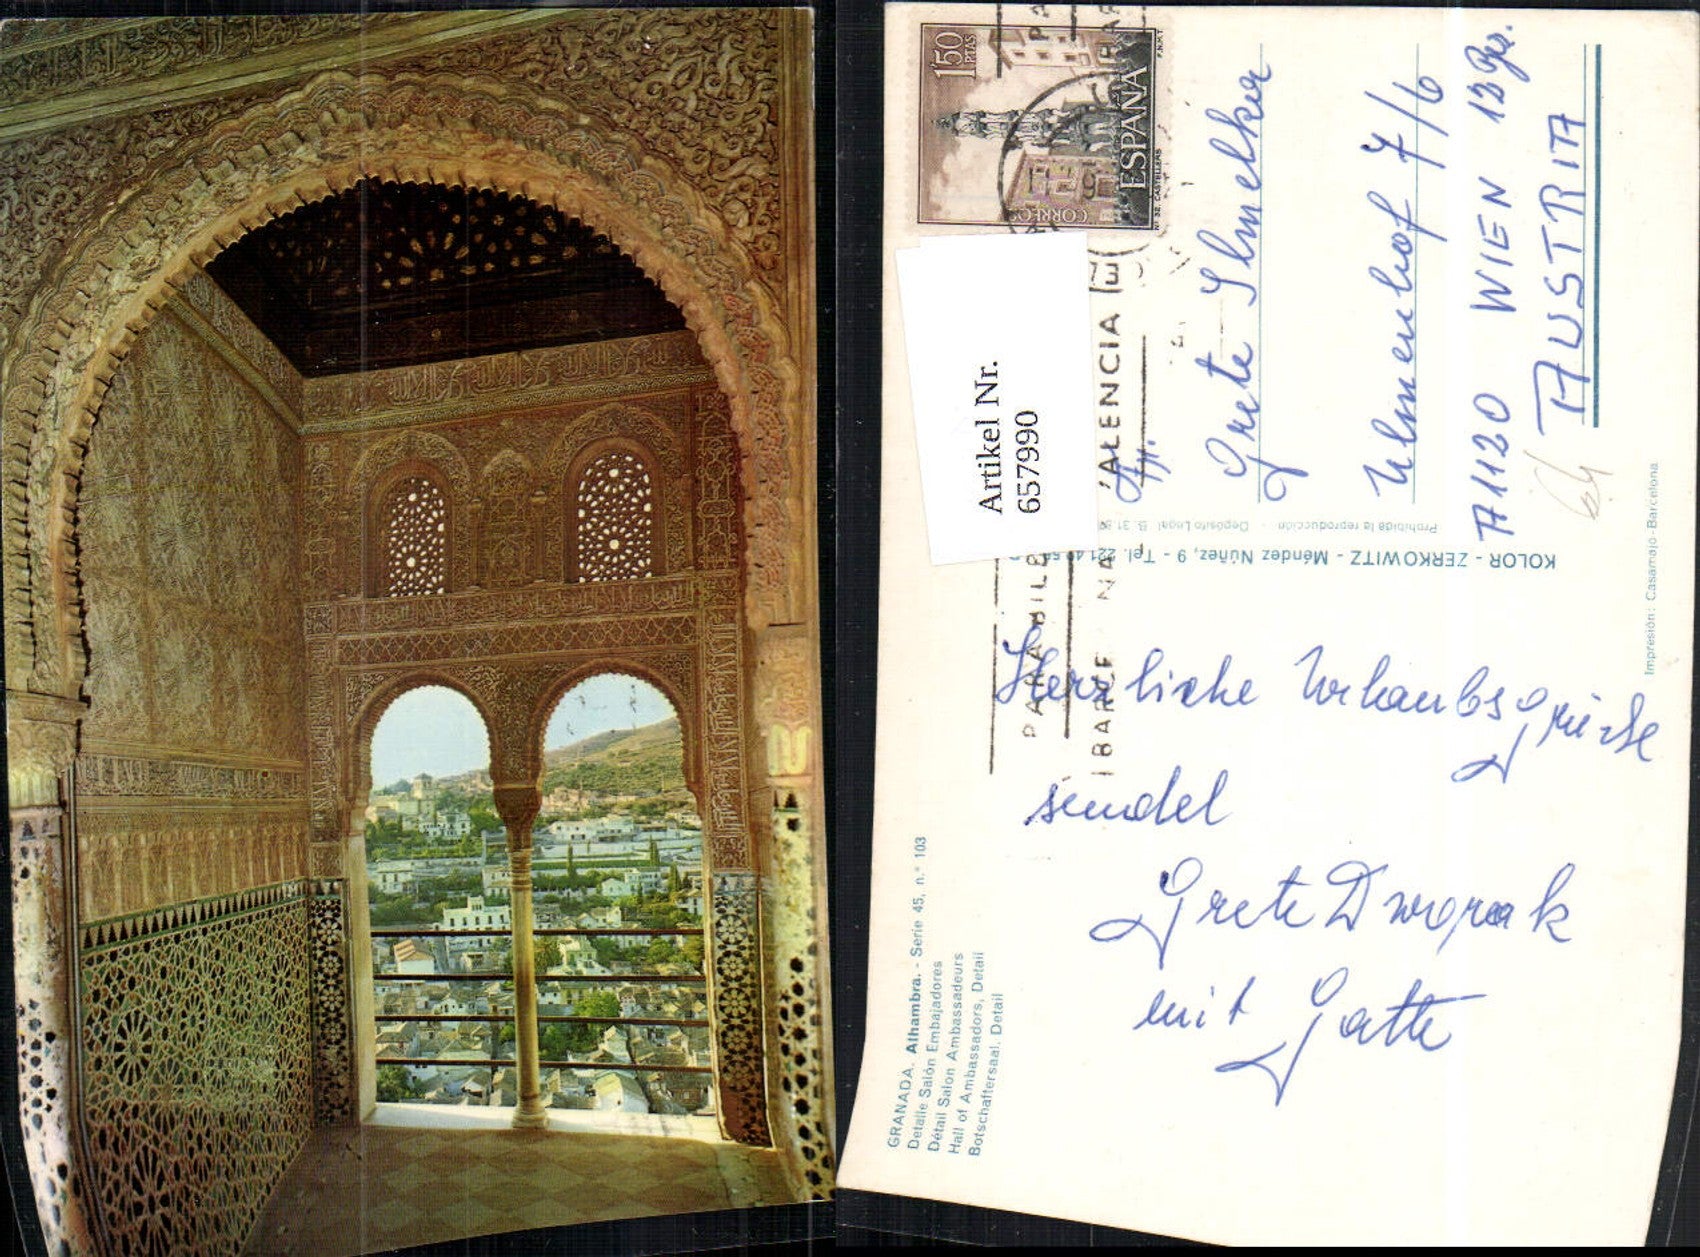 1'50
PTAS
ESPAÑA
CORREOS
F.N.M.T.
Artikel Nr.
657990
GRANADA. Alhambra. - Serie 45, n.° 103
Detalle Salón Embajadores
Détail Salon Ambassadeurs
Hall of Ambassadors, Detail
Botschaftersaal, Detail
Herzliche Urlaubsgrüße
sendet
Grete Dworak
mit Gatte
KOLOR - ZERKOWITZ - Méndez Núñez, 9 - Tel. 221
Prohibida la reproducción - Depósito Legal B. 31
Impresión: Casamajó-Barcelona
Grete
Ulmenhof 7/6
A1120 WIEN 12
AUSTRIA